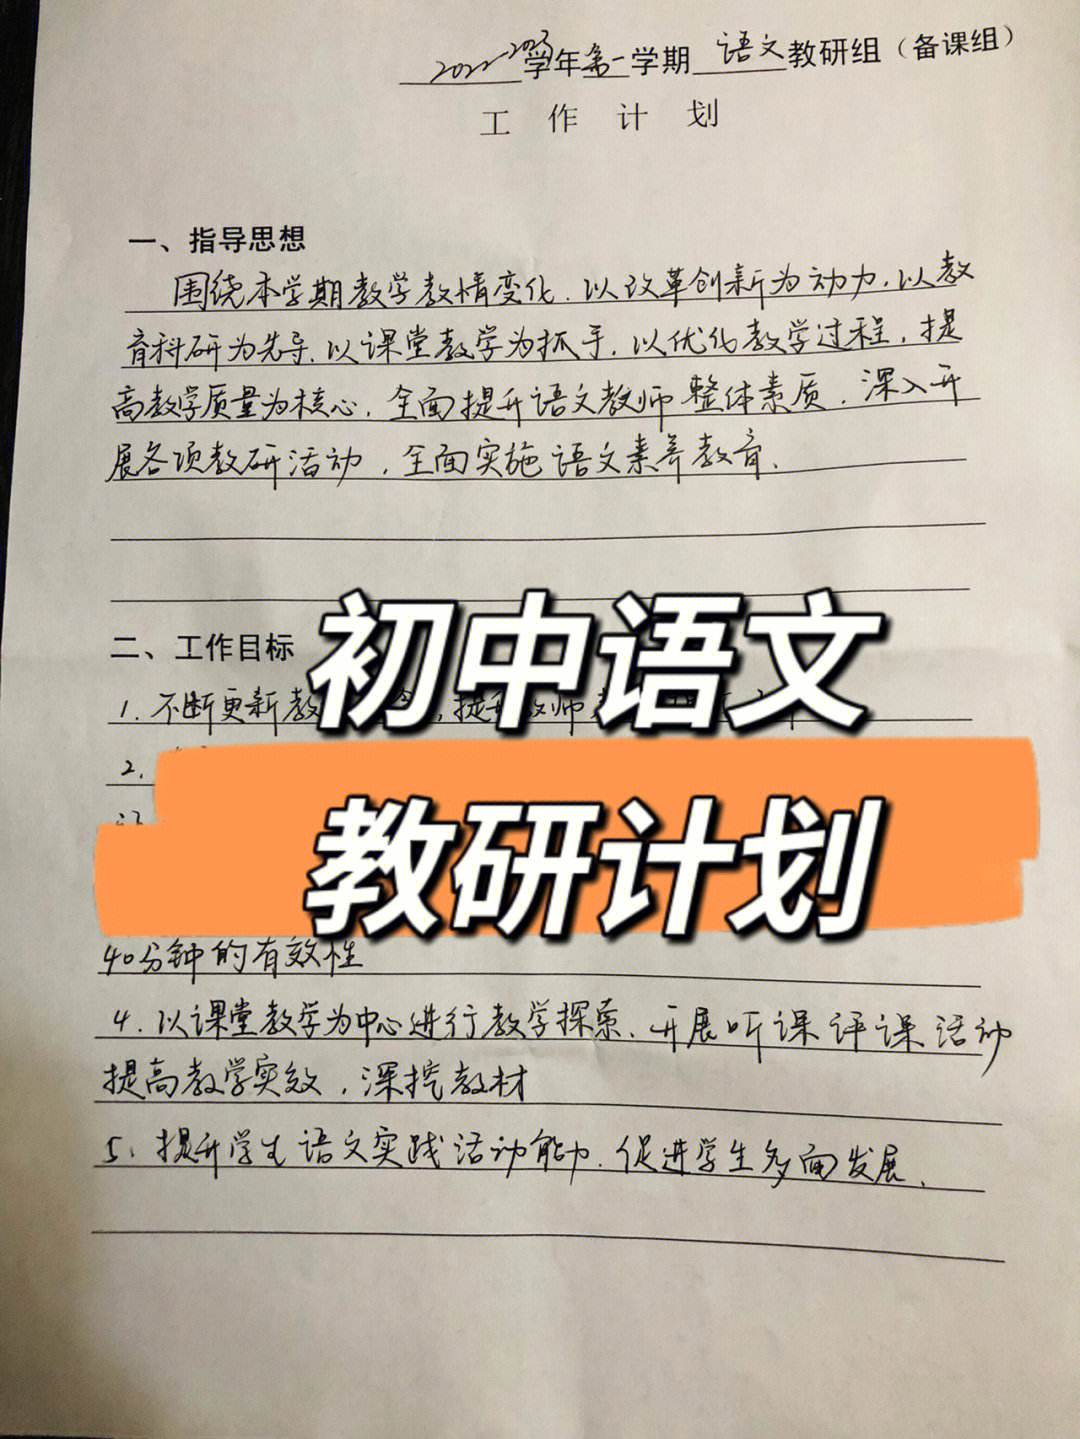 2022-2023学年第一学期 语文教研组（备课组）
工作计划
一、指导思想
围绕本学期教学教情变化、以改革创新为动力，以教
育科研为先导、以课堂教学为抓手，以优化教学过程，提
高教学质量为核心，全面提升语文教师整体素质，深入开
展各项教研活动，全面实施语文素养教育、
二、工作目标
初中语文
1、不断更新教
2、
教研计划
40分钟的有效性
4、以课堂教学为中心进行教学探索、开展听课评课活动
提高教学实效，深挖教材
5、提升学生语文实践活动能力、促进学生多面发展、